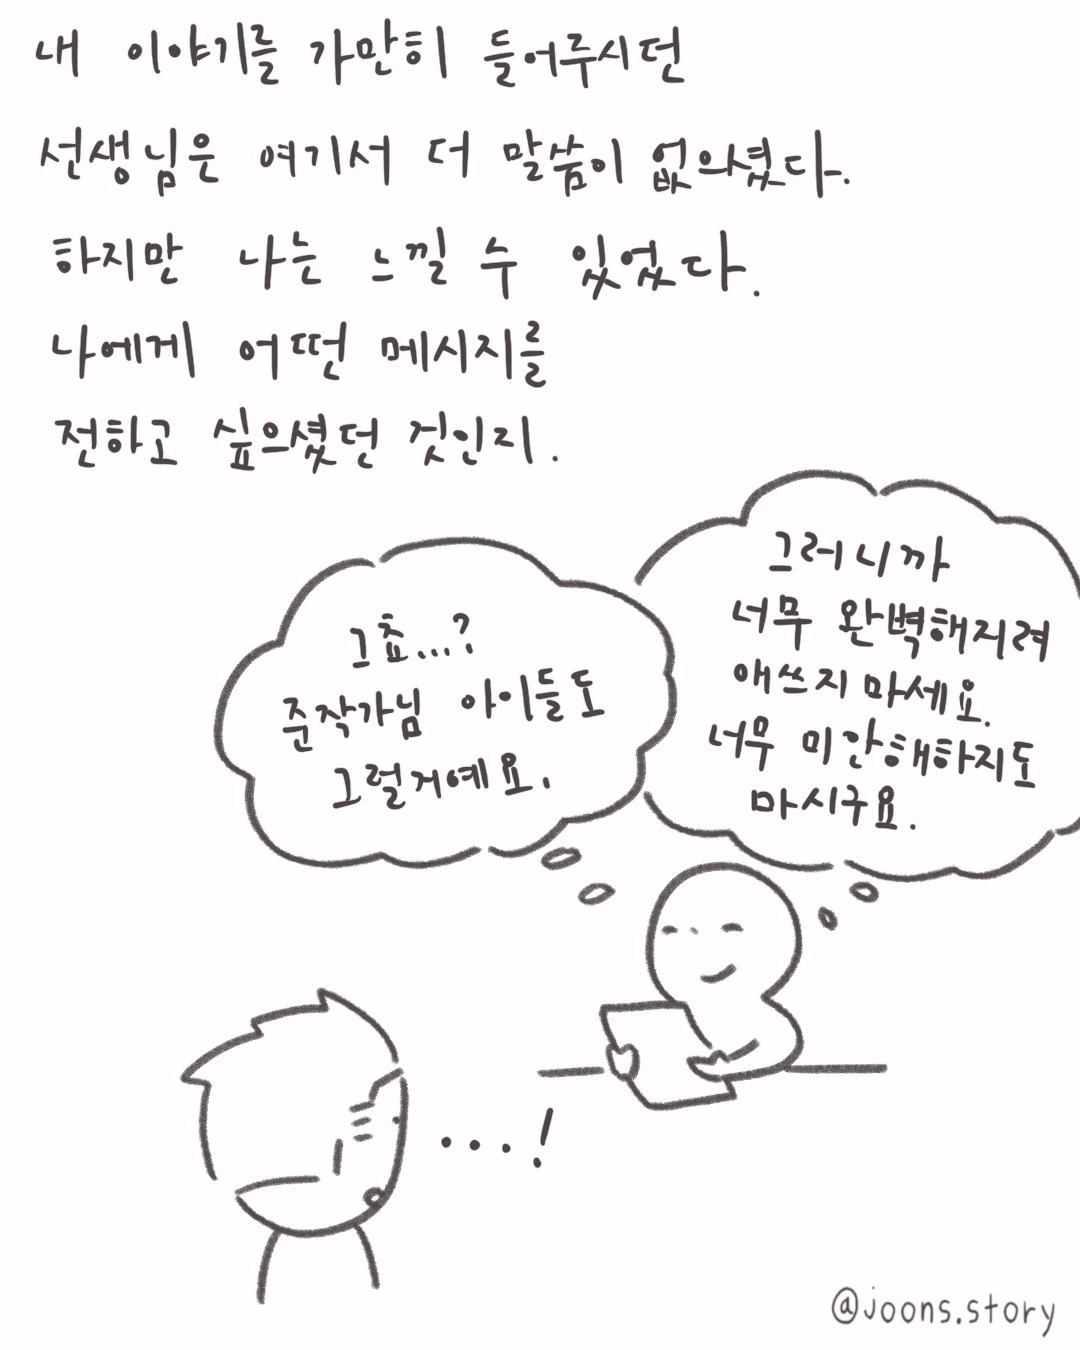 내 이야기를 가만히 들어주시던
선생님은 여기서 더 말씀이 없으셨다.
하지만 나는 느낄 수 있었다.
나에게 어떤 메시지를
전하고 싶으셨던 것인지.
그쵸...?
준작가님 아이들도
그럴거예요.
그러니까
너무 완벽해지려
애쓰지 마세요.
너무 미안해하지도
마시구요.
...!
@joons.story